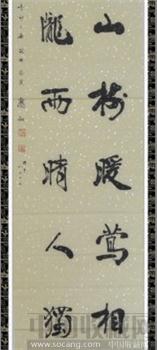 山樹暖鶯相
隴雨晴人獨
中国收藏网
www.socang.com